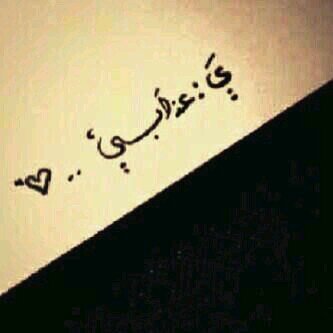 يَ : عذَابيُ .. ♡